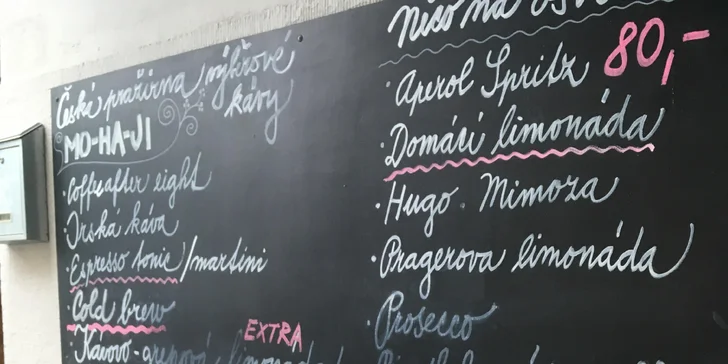 Česká pražírna výběrové
kávy
MO-HA-JI
· Coffee after eight
· Irská káva
· Espresso tonic/martini
· Cold brew
EXTRA
· Kávovo-
Něco na
· Aperol Spritz 80,-
· Domácí limonáda
· Hugo Mimoza
· Pragerova limonáda
· Prosecco